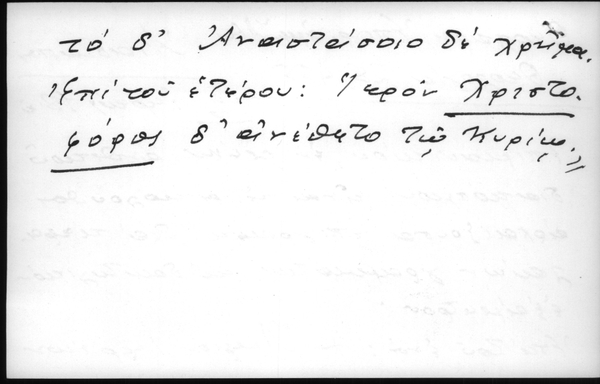 τό δ' Ἀναστάσοιο δέ χρῆμα.
Ἐπί τοῦ ἑτέρου: Ἱερόν Χριστο-
φόρος δ' ἀνέθετο τῷ Κυρίῳ."